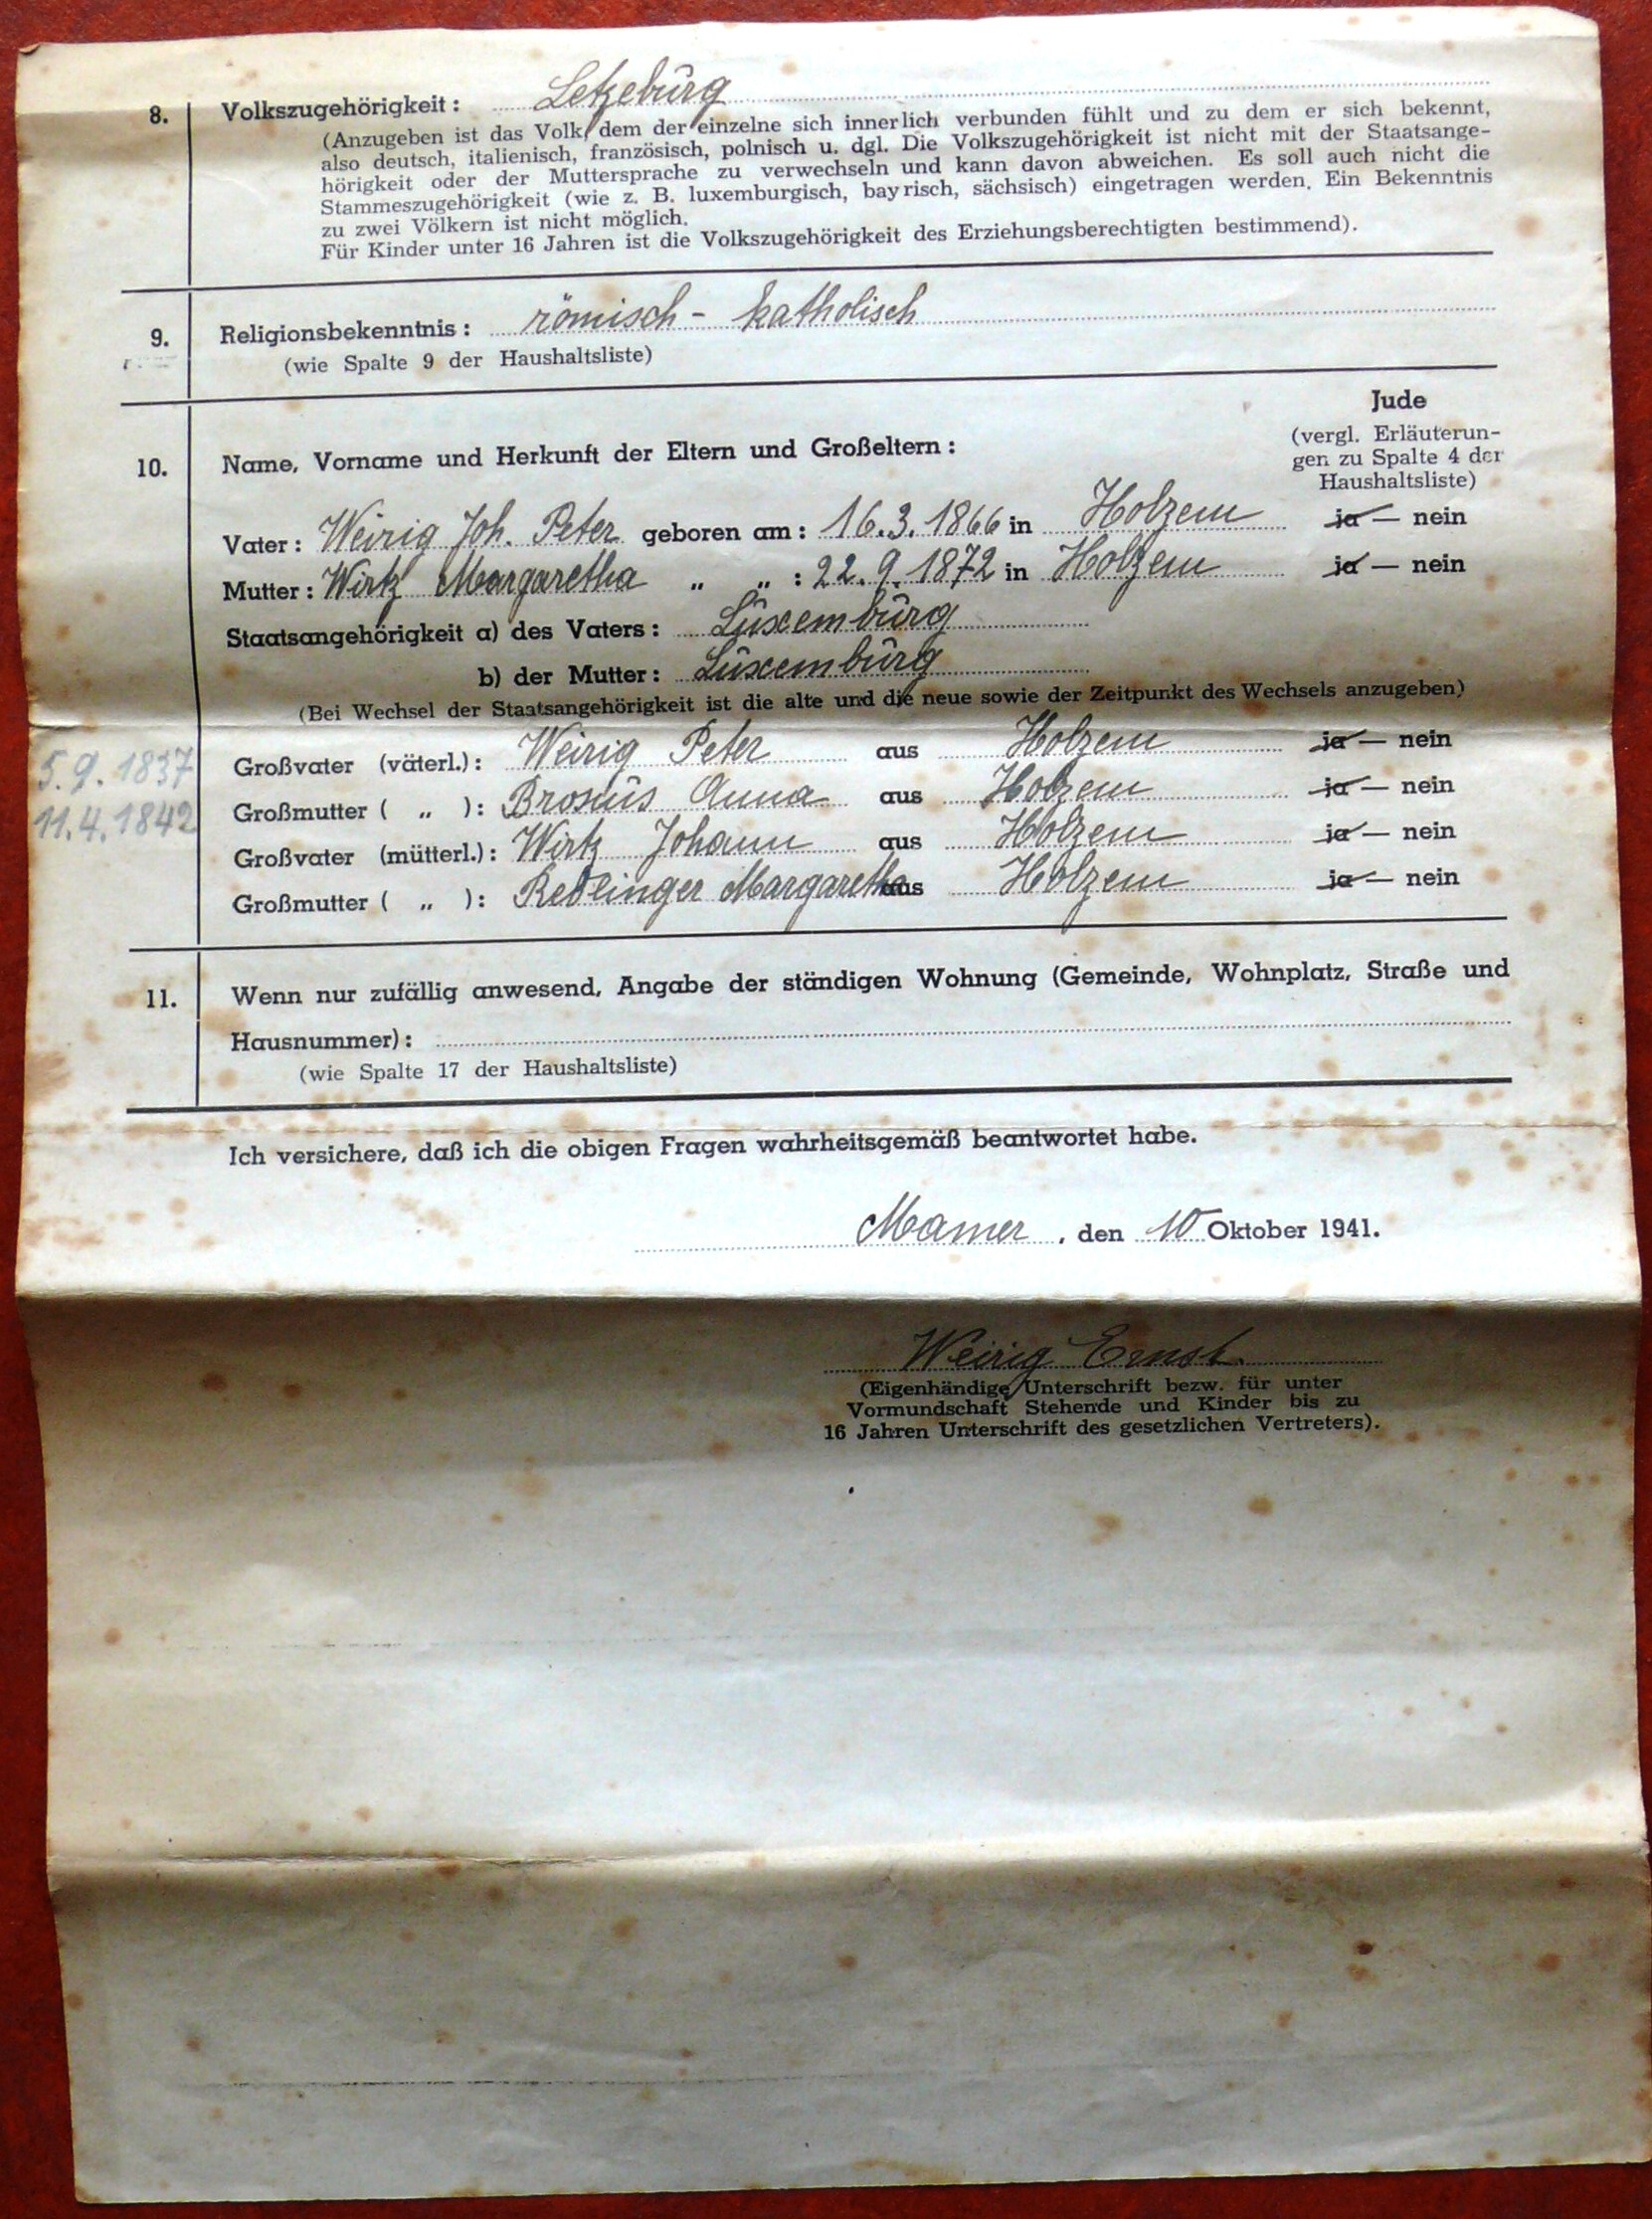 8. Volkszugehörigkeit: Letzebúrg
(Anzugeben ist das Volk, dem der einzelne sich innerlich verbunden fühlt und zu dem er sich bekennt,
also deutsch, italienisch, französisch, polnisch u. dgl. Die Volkszugehörigkeit ist nicht mit der Staatsange-
hörigkeit oder der Muttersprache zu verwechseln und kann davon abweichen. Es soll auch nicht die
Stammeszugehörigkeit (wie z. B. luxemburgisch, bayrisch, sächsisch) eingetragen werden. Ein Bekenntnis
zu zwei Völkern ist nicht möglich.
Für Kinder unter 16 Jahren ist die Volkszugehörigkeit des Erziehungsberechtigten bestimmend).
9. Religionsbekenntnis: römisch - katholisch
(wie Spalte 9 der Haushaltsliste)
Jude
(vergl. Erläuterun-
gen zu Spalte 4 der
Haushaltsliste)
10. Name, Vorname und Herkunft der Eltern und Großeltern:
Vater: Weirig Joh. Peter geboren am: 16.3.1866 in Holzem ja — nein
Mutter: Wirtz Margaretha „ „ : 22.9.1872 in Holzem ja — nein
Staatsangehörigkeit a) des Vaters: Lúxembúrg
b) der Mutter: Lúxembúrg
(Bei Wechsel der Staatsangehörigkeit ist die alte und die neue sowie der Zeitpunkt des Wechsels anzugeben)
5.9.1837 Großvater (väterl.): Weirig Peter aus Holzem ja — nein
11.4.1842 Großmutter ( „ ): Brosius Anna aus Holzem ja — nein
Großvater (mütterl.): Wirtz Johann aus Holzem ja — nein
Großmutter ( „ ): Redlinger Margaretha aus Holzem ja — nein
11. Wenn nur zufällig anwesend, Angabe der ständigen Wohnung (Gemeinde, Wohnplatz, Straße und
Hausnummer):
(wie Spalte 17 der Haushaltsliste)
Ich versichere, daß ich die obigen Fragen wahrheitsgemäß beantwortet habe.
Mamer, den 10 Oktober 1941.
Weirig Ernst.
(Eigenhändige Unterschrift bezw. für unter
Vormundschaft Stehende und Kinder bis zu
16 Jahren Unterschrift des gesetzlichen Vertreters).